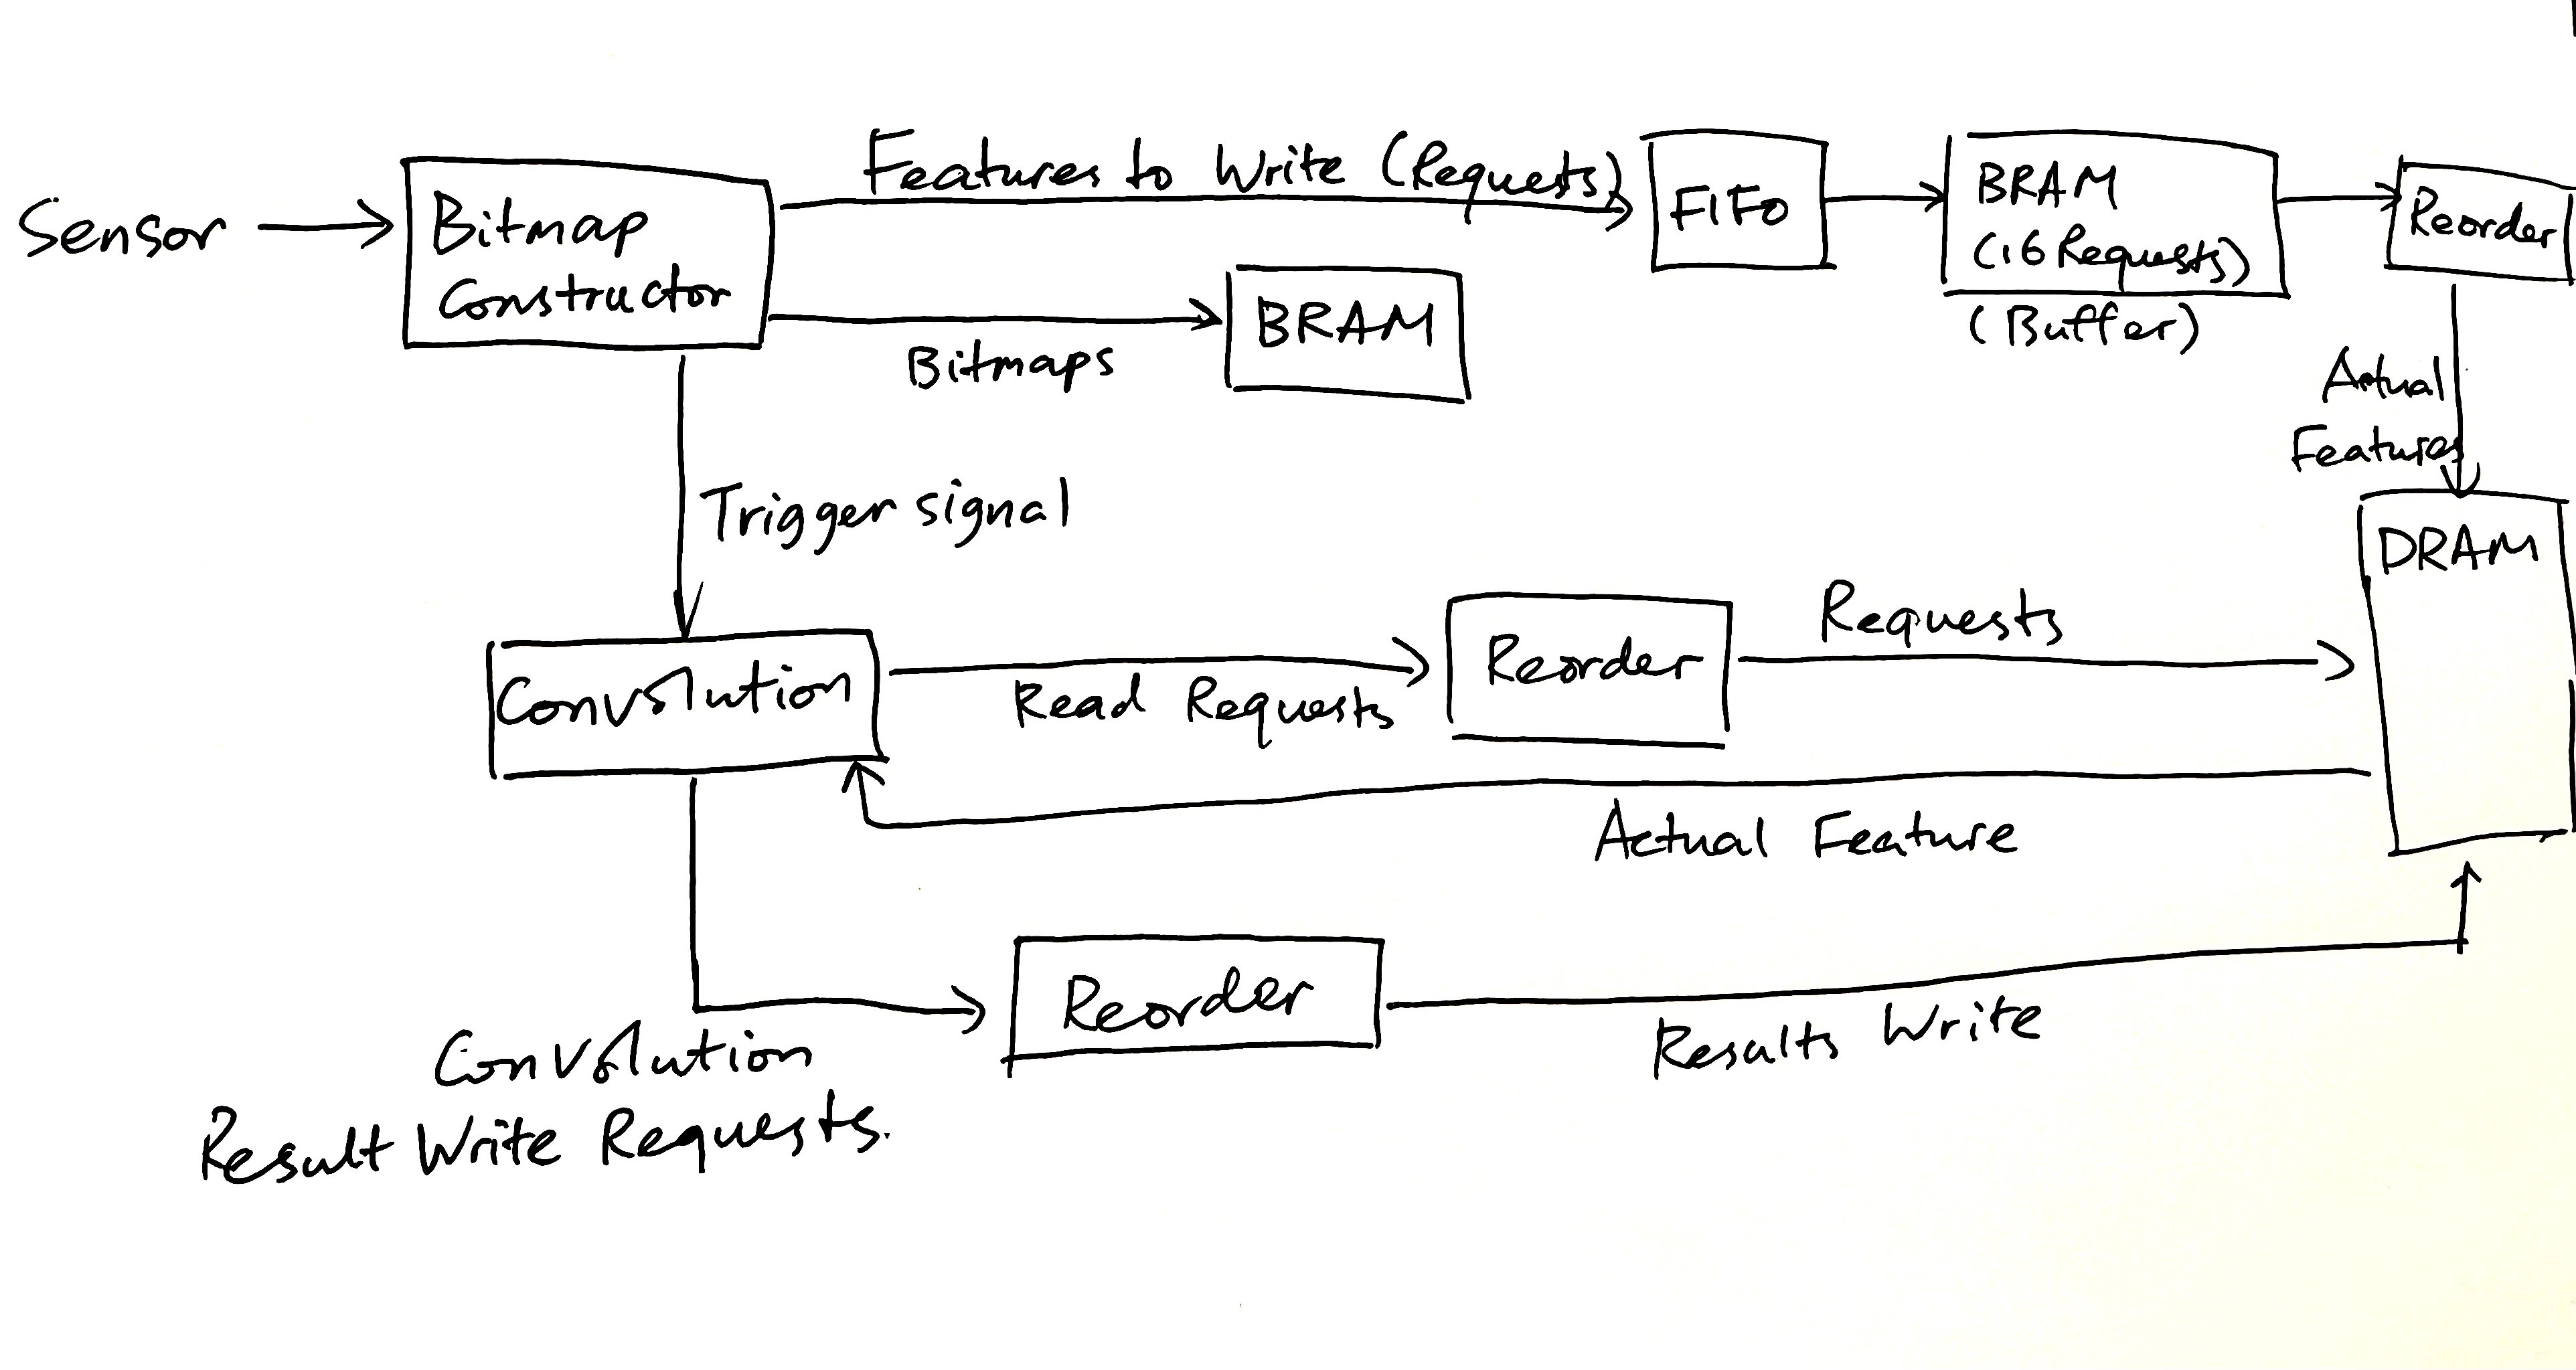 Sensor
Bitmap
Constructor
Features to Write (Requests)
FIFO
BRAM
(16 Requests)
(Buffer)
Reorder
Bitmaps
BRAM
Actual
Features
Trigger signal
DRAM
Convolution
Read Requests
Reorder
Requests
Actual Feature
Reorder
Results Write
Convolution
Result Write Requests.